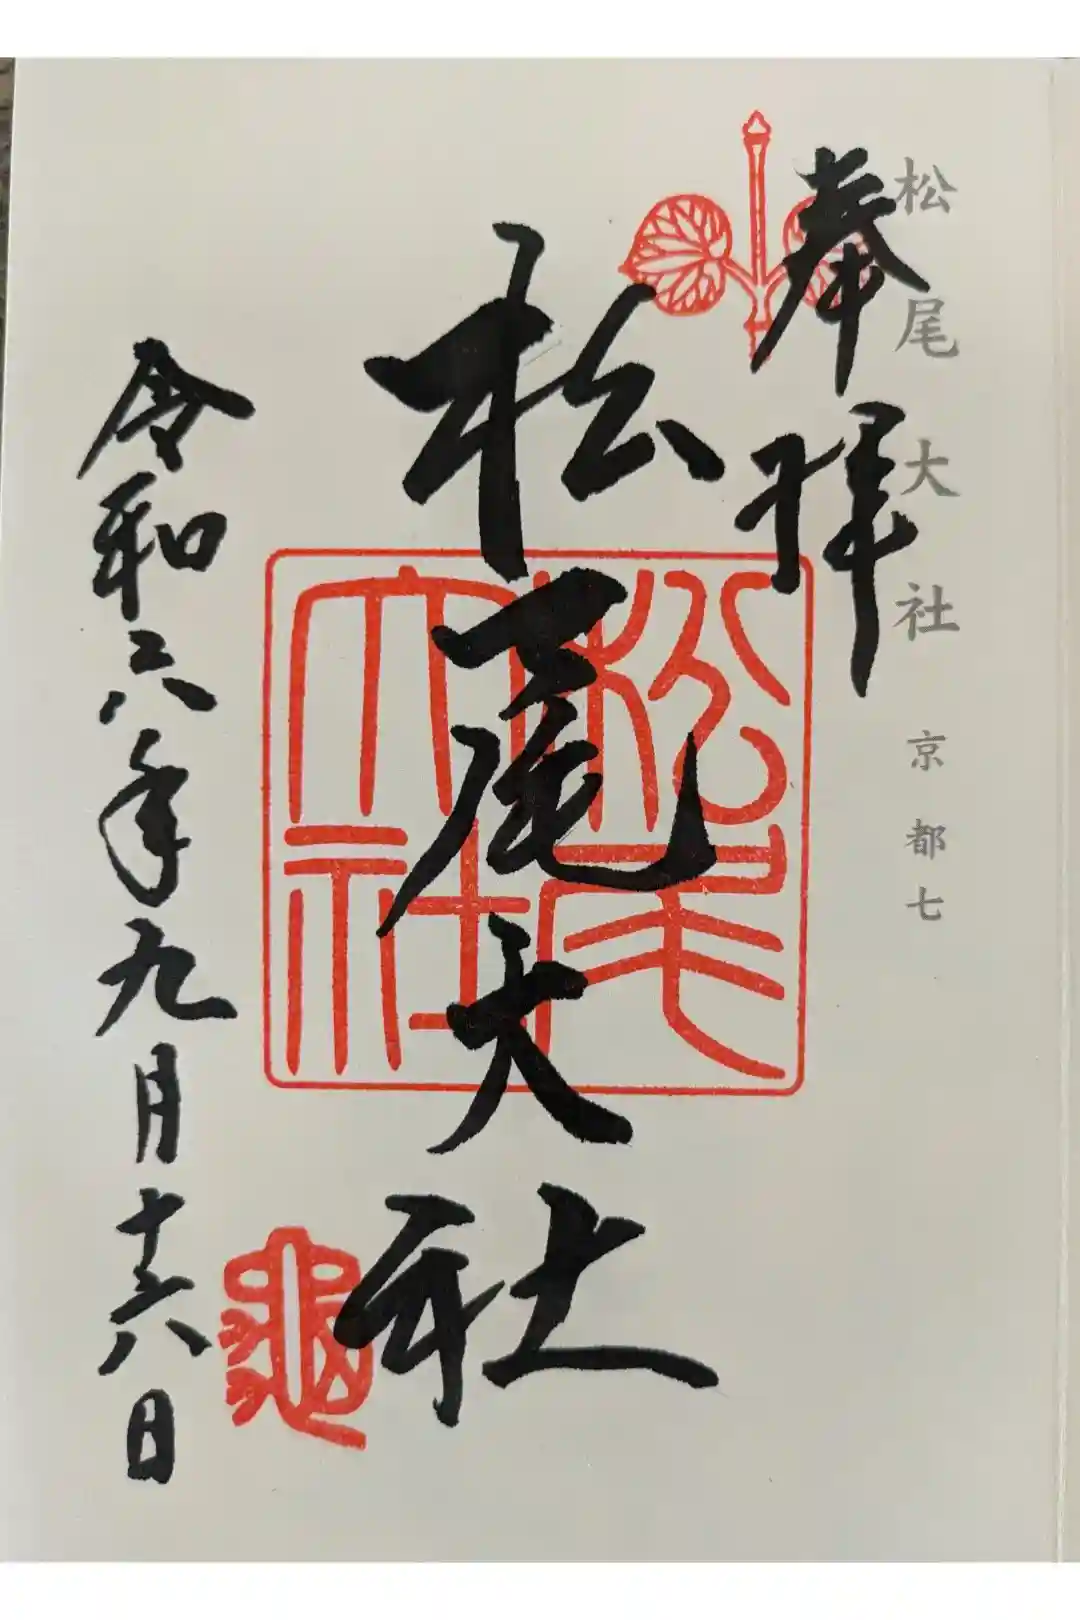 松尾大社 京都七
奉拝
松尾大社
松尾大社
令和六年九月十六日
亀